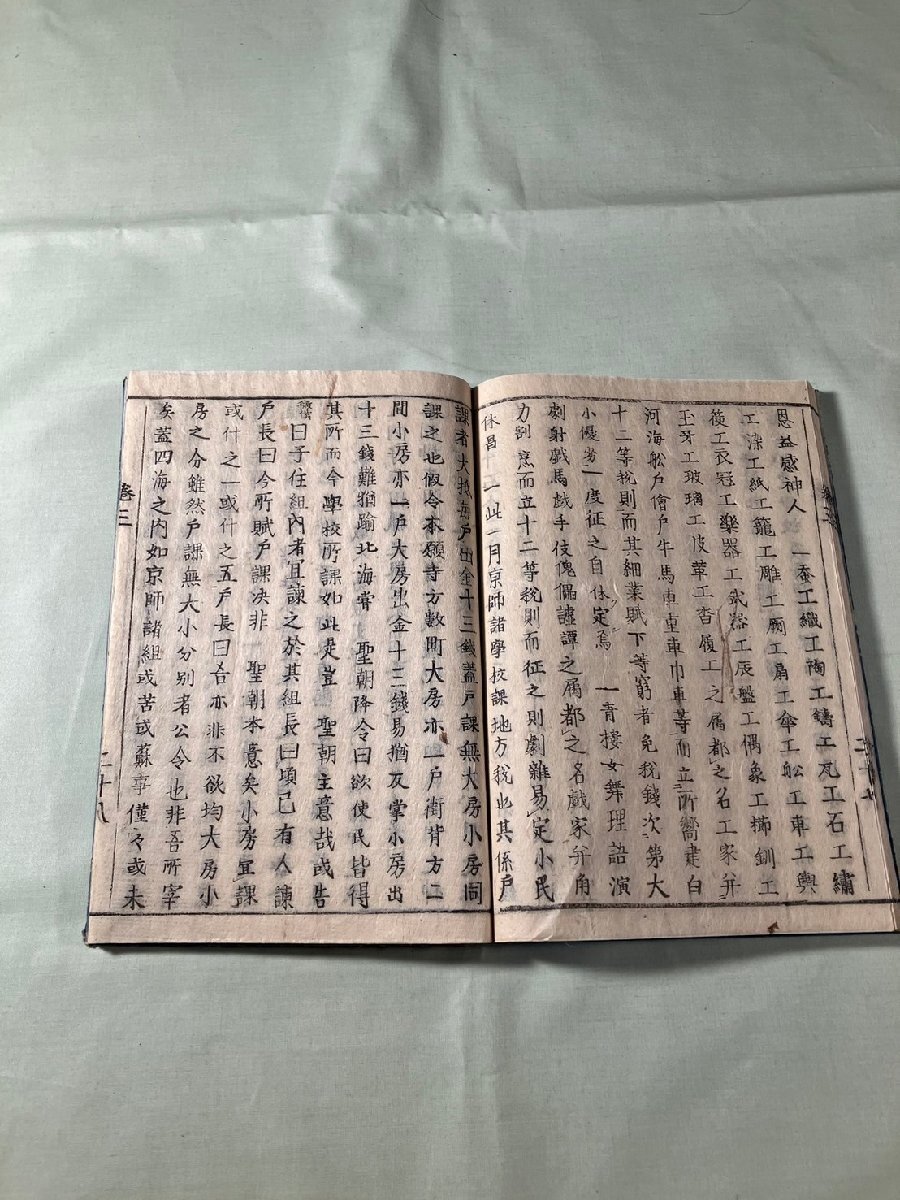 恩益感神人　一蚕工織工陶工鑄工瓦工石工繡
工漆工紙工籠工雕工厨工扇工傘工舩工車工輿
工衣冠工樂器工武器工辰盤工偶象工櫛釧工
玉牙工玻璃工皮革工沓履工之属都之名工家并
河海舩戸會戸牛馬車重車巾車等而立所嚮建白
十二等税則而其細業賦下等窮者免税錢次第大
小優者一度征之自休定焉　一青樓女舞理語演
劇射戲馬戲手伎傀儡謔譚之属都之名戲家弁角
力割烹而立十二等税則而征之則劇難易定小民
休昌　一此一月京師諸學校課地方税也其係戸
課者大抵每戸出金十三錢蓋戸課無大房小房同
課之也假令本願寺方數町大房亦一戸街背方二
間小房亦一戸大房出金十三錢易猶反掌小房出
十三錢難猶踰北海嘗　聖朝降令曰欲使民皆得
其所而今學校所課如此是豈　聖朝主意哉或告
曰子住組内者宜諫之於其組長曰頃已有人諫
戸長曰今所賦戸課决非　聖朝本意矣小房宜課
或什之一或什之五戸長曰吾亦非不欲均大房小
房之分雖然戸課無大小分别者公令也非吾所宰
矣蓋四海之内如京師諸組或苦或蘇事僅々或未
卷三
二十八